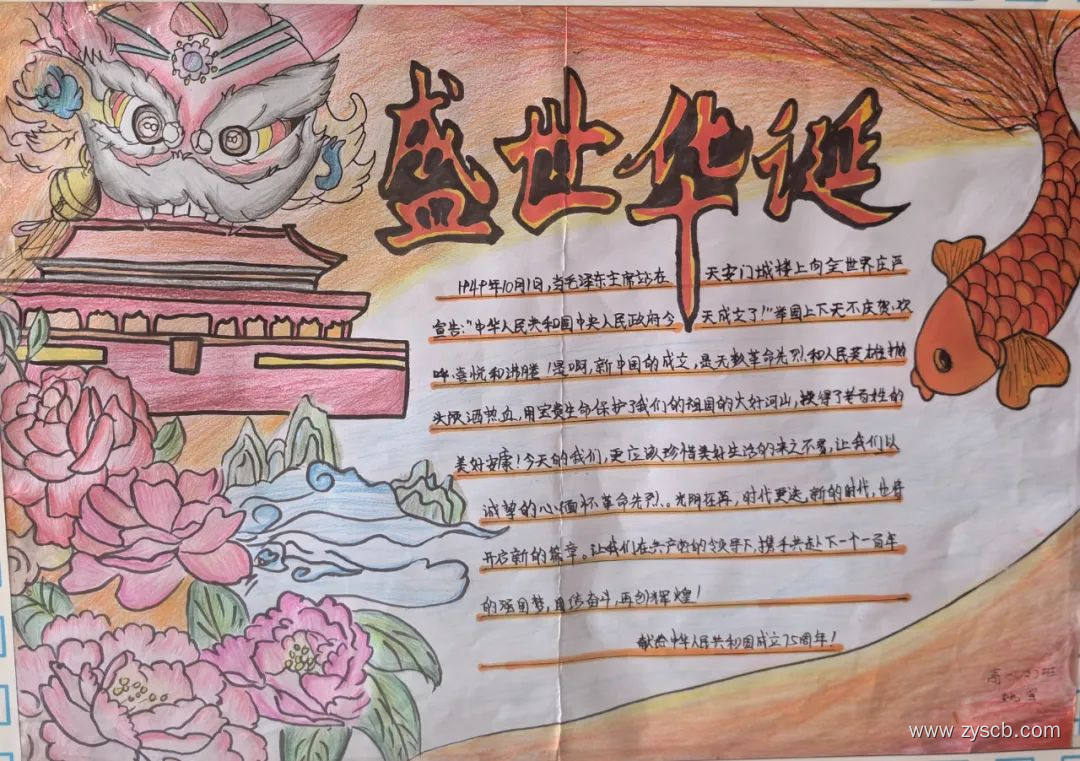 盛世华诞
1949年10月1日,当毛泽东主席站在天安门城楼上向全世界庄严
宣告:"中华人民共和国中央人民政府今天成立了!"举国上下无不庆贺、欢
呼、喜悦和沸腾!是啊,新中国的成立,是无数革命先烈和人民英雄抛
头颅洒热血,用宝贵生命保护了我们的祖国的大好河山,换得了老百姓的
美好安康!今天的我们,更应该珍惜美好生活的来之不易,让我们以
诚挚的心缅怀革命先烈。光阴荏苒,时代更迭,新的时代,也将
开启新的篇章。让我们在共产党的领导下,携手共赴下一个一百年
的强国梦,自信奋斗,再创辉煌!
献给中华人民共和国成立75周年!
www.zyscb.com